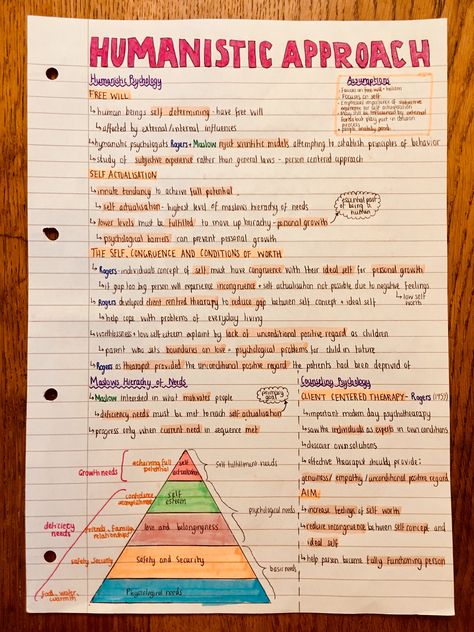 HUMANISTIC APPROACH
Humanistic Psychology
FREE WILL
↳ human beings self determining - have free will
↳ affected by external/internal influences
↳ humanistic psychologists Rogers + Maslow reject scientific models attempting to establish principles of behavior
↳ study of subjective experience rather than general laws - person centered approach
Assumptions
- Focuses on free will + holism
- Focuses on self
- Emphasises importance of subjective
- people innately good
SELF ACTUALISATION
↳ innate tendency to achieve full potential
↳ self actualisation - highest level of maslows hierachy of needs
↳ lower levels must be fulfilled to move up hierachy - personal growth
↳ psychological barriers can prevent personal growth
essential part of being a human
THE SELF, CONGRUENCE AND CONDITIONS OF WORTH
↳ Rogers - individuals concept of self must have congruence with their ideal self for personal growth
↳ if gap too big person will experience incongruence + self actualisation not possible due to negative feelings
↳ low self worth
↳ Rogers developed client centred therapy to reduce gap between self concept + ideal self
↳ help cope with problems of everyday living
↳ worthlessness + low self esteem explaint by lack of unconditional positive regard as children
↳ parent who sets boundaries on love - psychological problems for child in future
↳ Rogers as therapist provided the unconditional positive regard the patients had been deprived of
Maslows Hierachy of Needs
↳ Maslow intrested in what motivates people
primary goal
↳ deficiency needs must be met to reach self actualisation
↳ progress only when current need in sequence met
Growth needs
achieving full potential
self actualisation
self fulfillment needs
deficiency needs
confidence
accomplishment
self esteem
psychological needs
friends, family, relationships
love and belongingness
safety, security
Safety and Security
basic needs
food, water, warmth
Physiological needs
Counseling Psychology
CLIENT CENTERED THERAPY - Rogers (1959)
↳ important modern day psychotherapy
↳ saw the individuals as experts in own conditions
↳ discover own solutions
↳ effective therapist should provide:
genuiness / empathy / unconditional positive regard
AIM:
↳ increase feelings of self worth
↳ reduce incongruence between self concept and
ideal self
↳ help person become fully functioning person